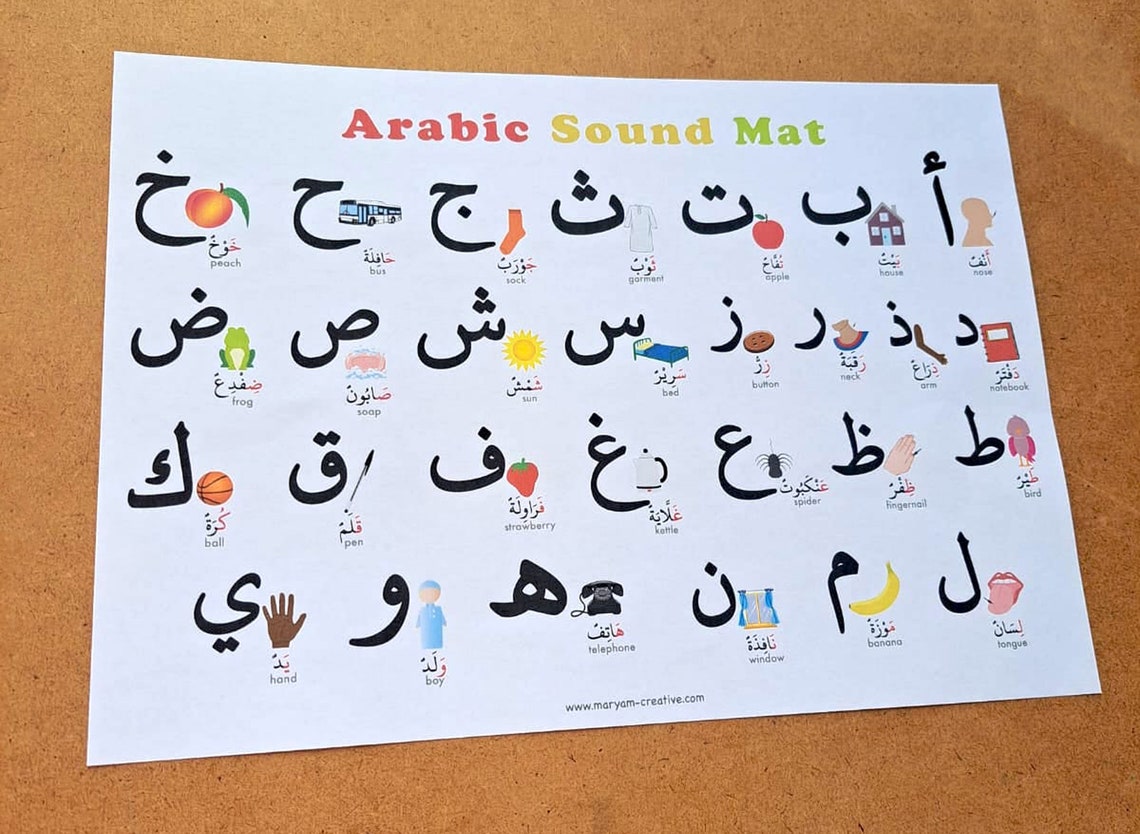 Arabic Sound Mat
أ ب ت ث ج ح خ
أَنْفٌ بَيْتٌ تُفَّاحٌ ثَوْبٌ جَوْرَبٌ حَافِلَةٌ خَوْخٌ
nose house apple garment sock bus peach
د ذ ر ز س ش ص ض
دَفْتَرٌ ذِرَاعٌ رَقَبَةٌ زِرٌّ سَرِيْرٌ شَمْسٌ صَابُونٌ ضِفْدِعٌ
notebook arm neck button bed sun soap frog
ط ظ ع غ ف ق ك
طَيْرٌ ظِفْرٌ عَنْكَبُوتٌ غَلَّايَةٌ فَرَاوِلَةٌ قَلَمٌ كُرَةٌ
bird fingernail spider kettle strawberry pen ball
ل م ن ه و ي
لِسَانٌ مَوْزَةٌ نَافِذَةٌ هَاتِفٌ وَلَدٌ يَدٌ
tongue banana window telephone boy hand
www.maryam-creative.com